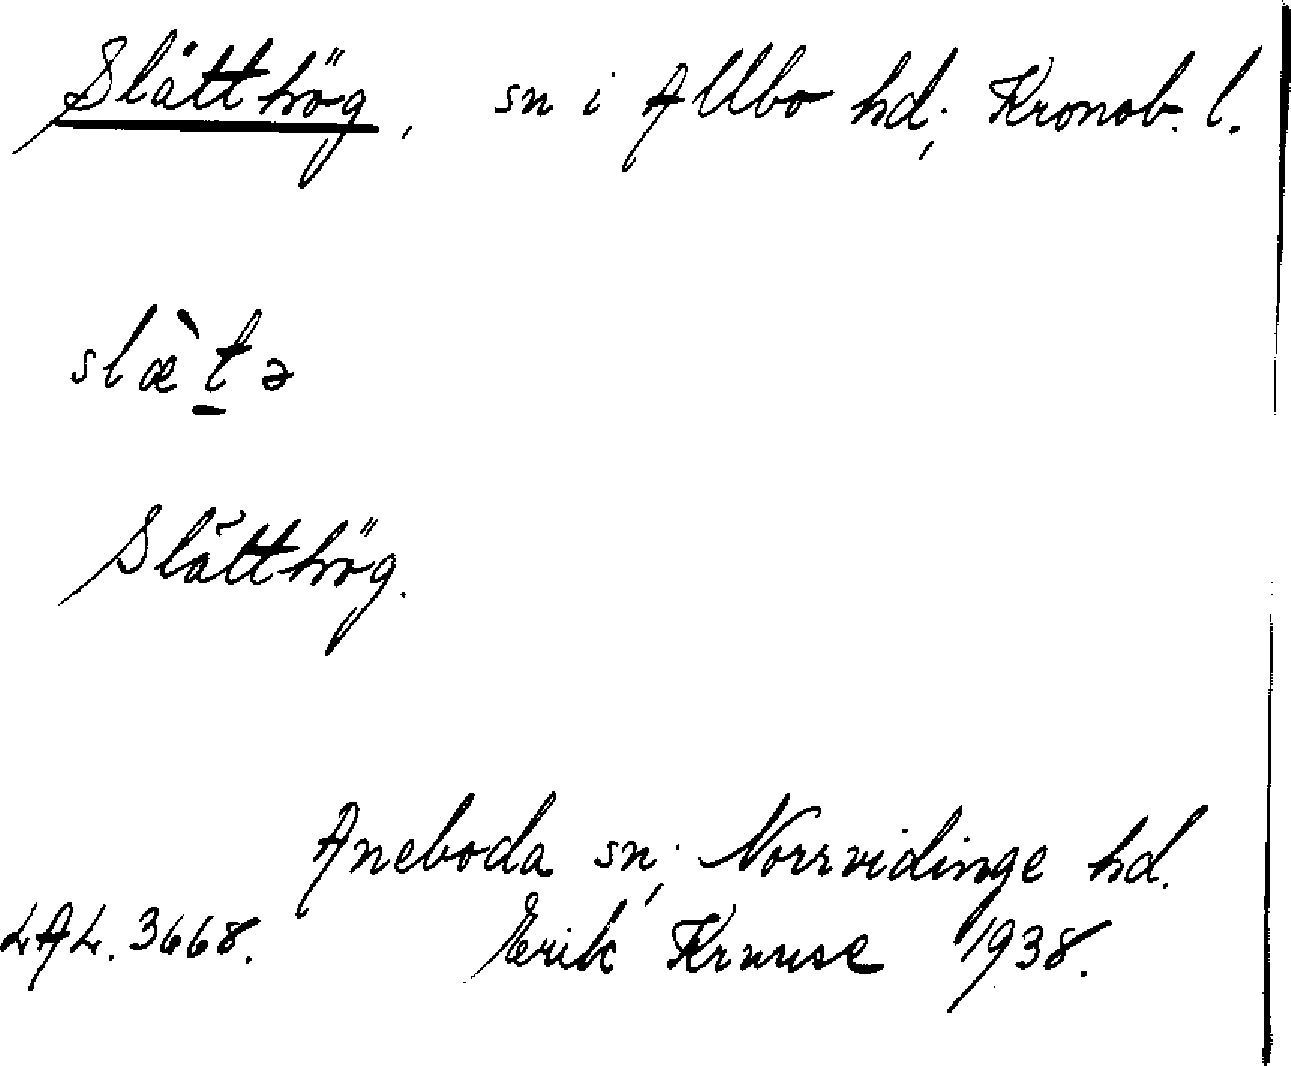 Slätthög, sn i Allbo hd; Kronob. l.
slæ̀t̲ə
Slätthög.
Aneboda sn; Norrvidinge hd.
LAL. 3668. Erik Krause 1938.